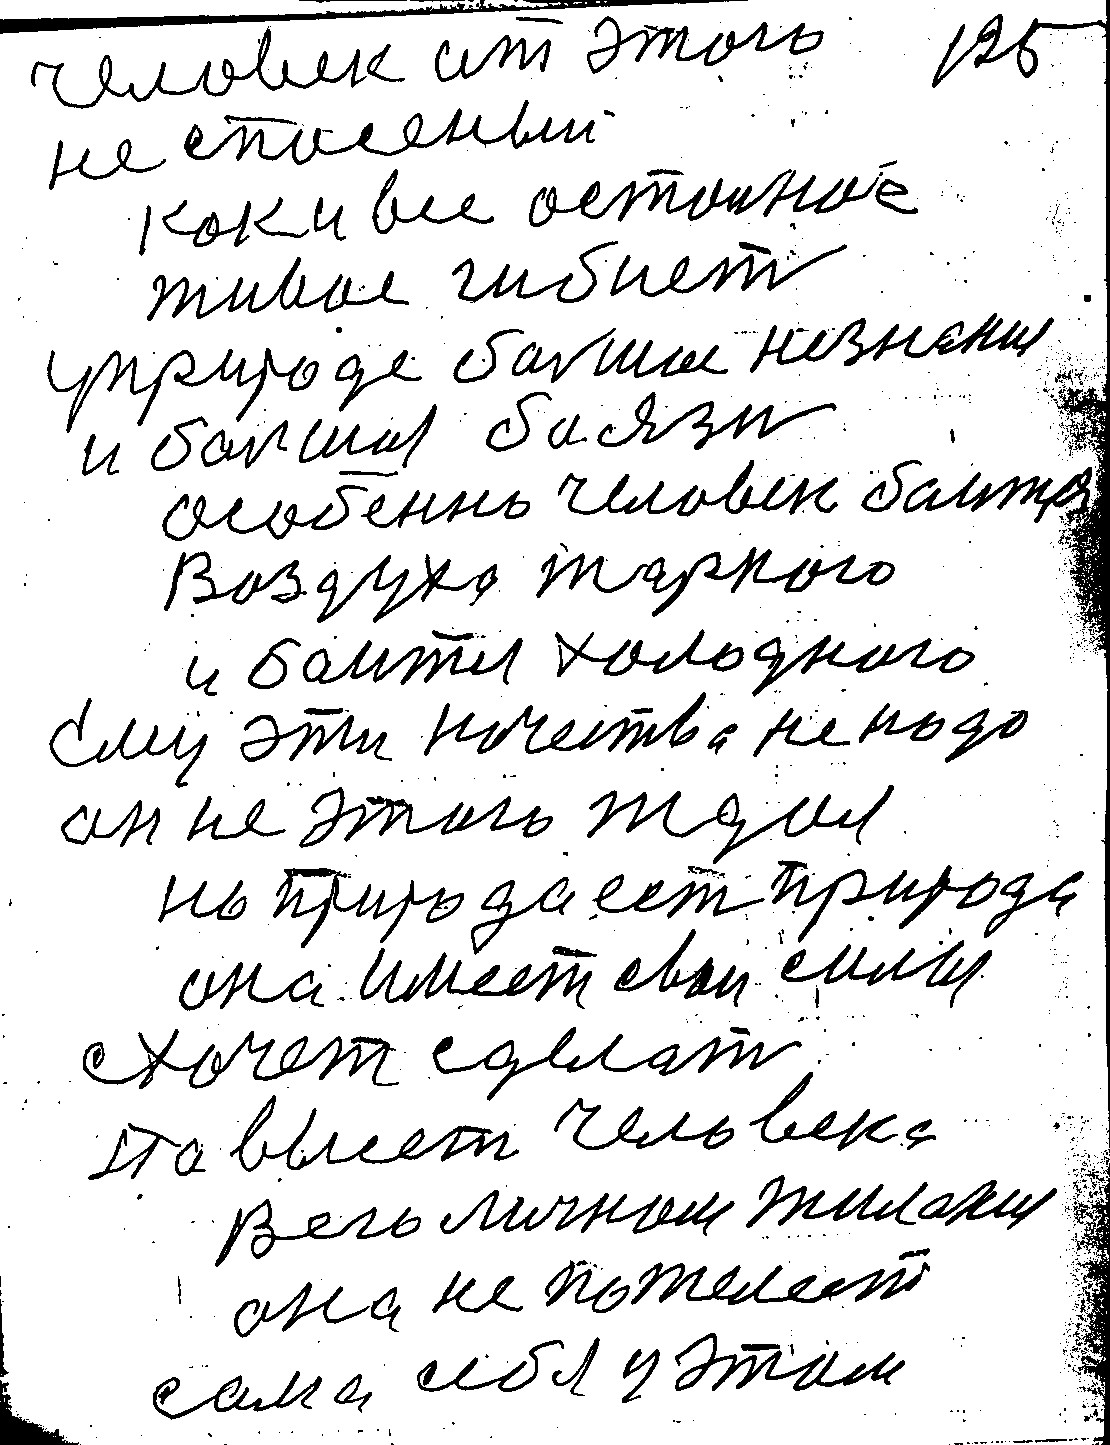 человек от этого 125
не спасеный
как и все остальное
живое гибнет
у природе больше незнания
и большая боязн
особенно человек боится
Воздуха жаркого
и боится холодного
Ему эти качества не надо
он не этого ждал
но природа ест природа
она имеет свои силы
схочет сделат
та высет человека
В его личном жилании
она не пожелеет
сама себя у этом